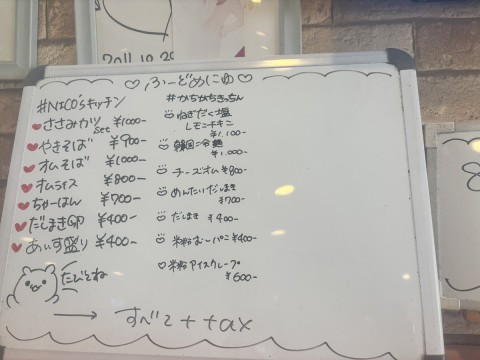 2011.10.29
♡ふーどめにゅ♡
#NICO'sキッチン
♥ささみカツset ¥1000-
♥やきそば ¥900-
♥オムそば ¥1000-
♥オムライス ¥800-
♥ちゃーはん ¥700-
♥だしまき卵 ¥400-
♥あいす盛り ¥400-
たびてね
#かちかちきっちん
ねぎだく塩
レモンチキン
¥1,100-
韓国冷麺
¥1,000-
チーズオム ¥800-
めんたいだしまき
¥700-
だしまき ¥400-
米粉むーパン ¥400-
♡米粉アイスクレープ
¥600-
→ すべて+tax